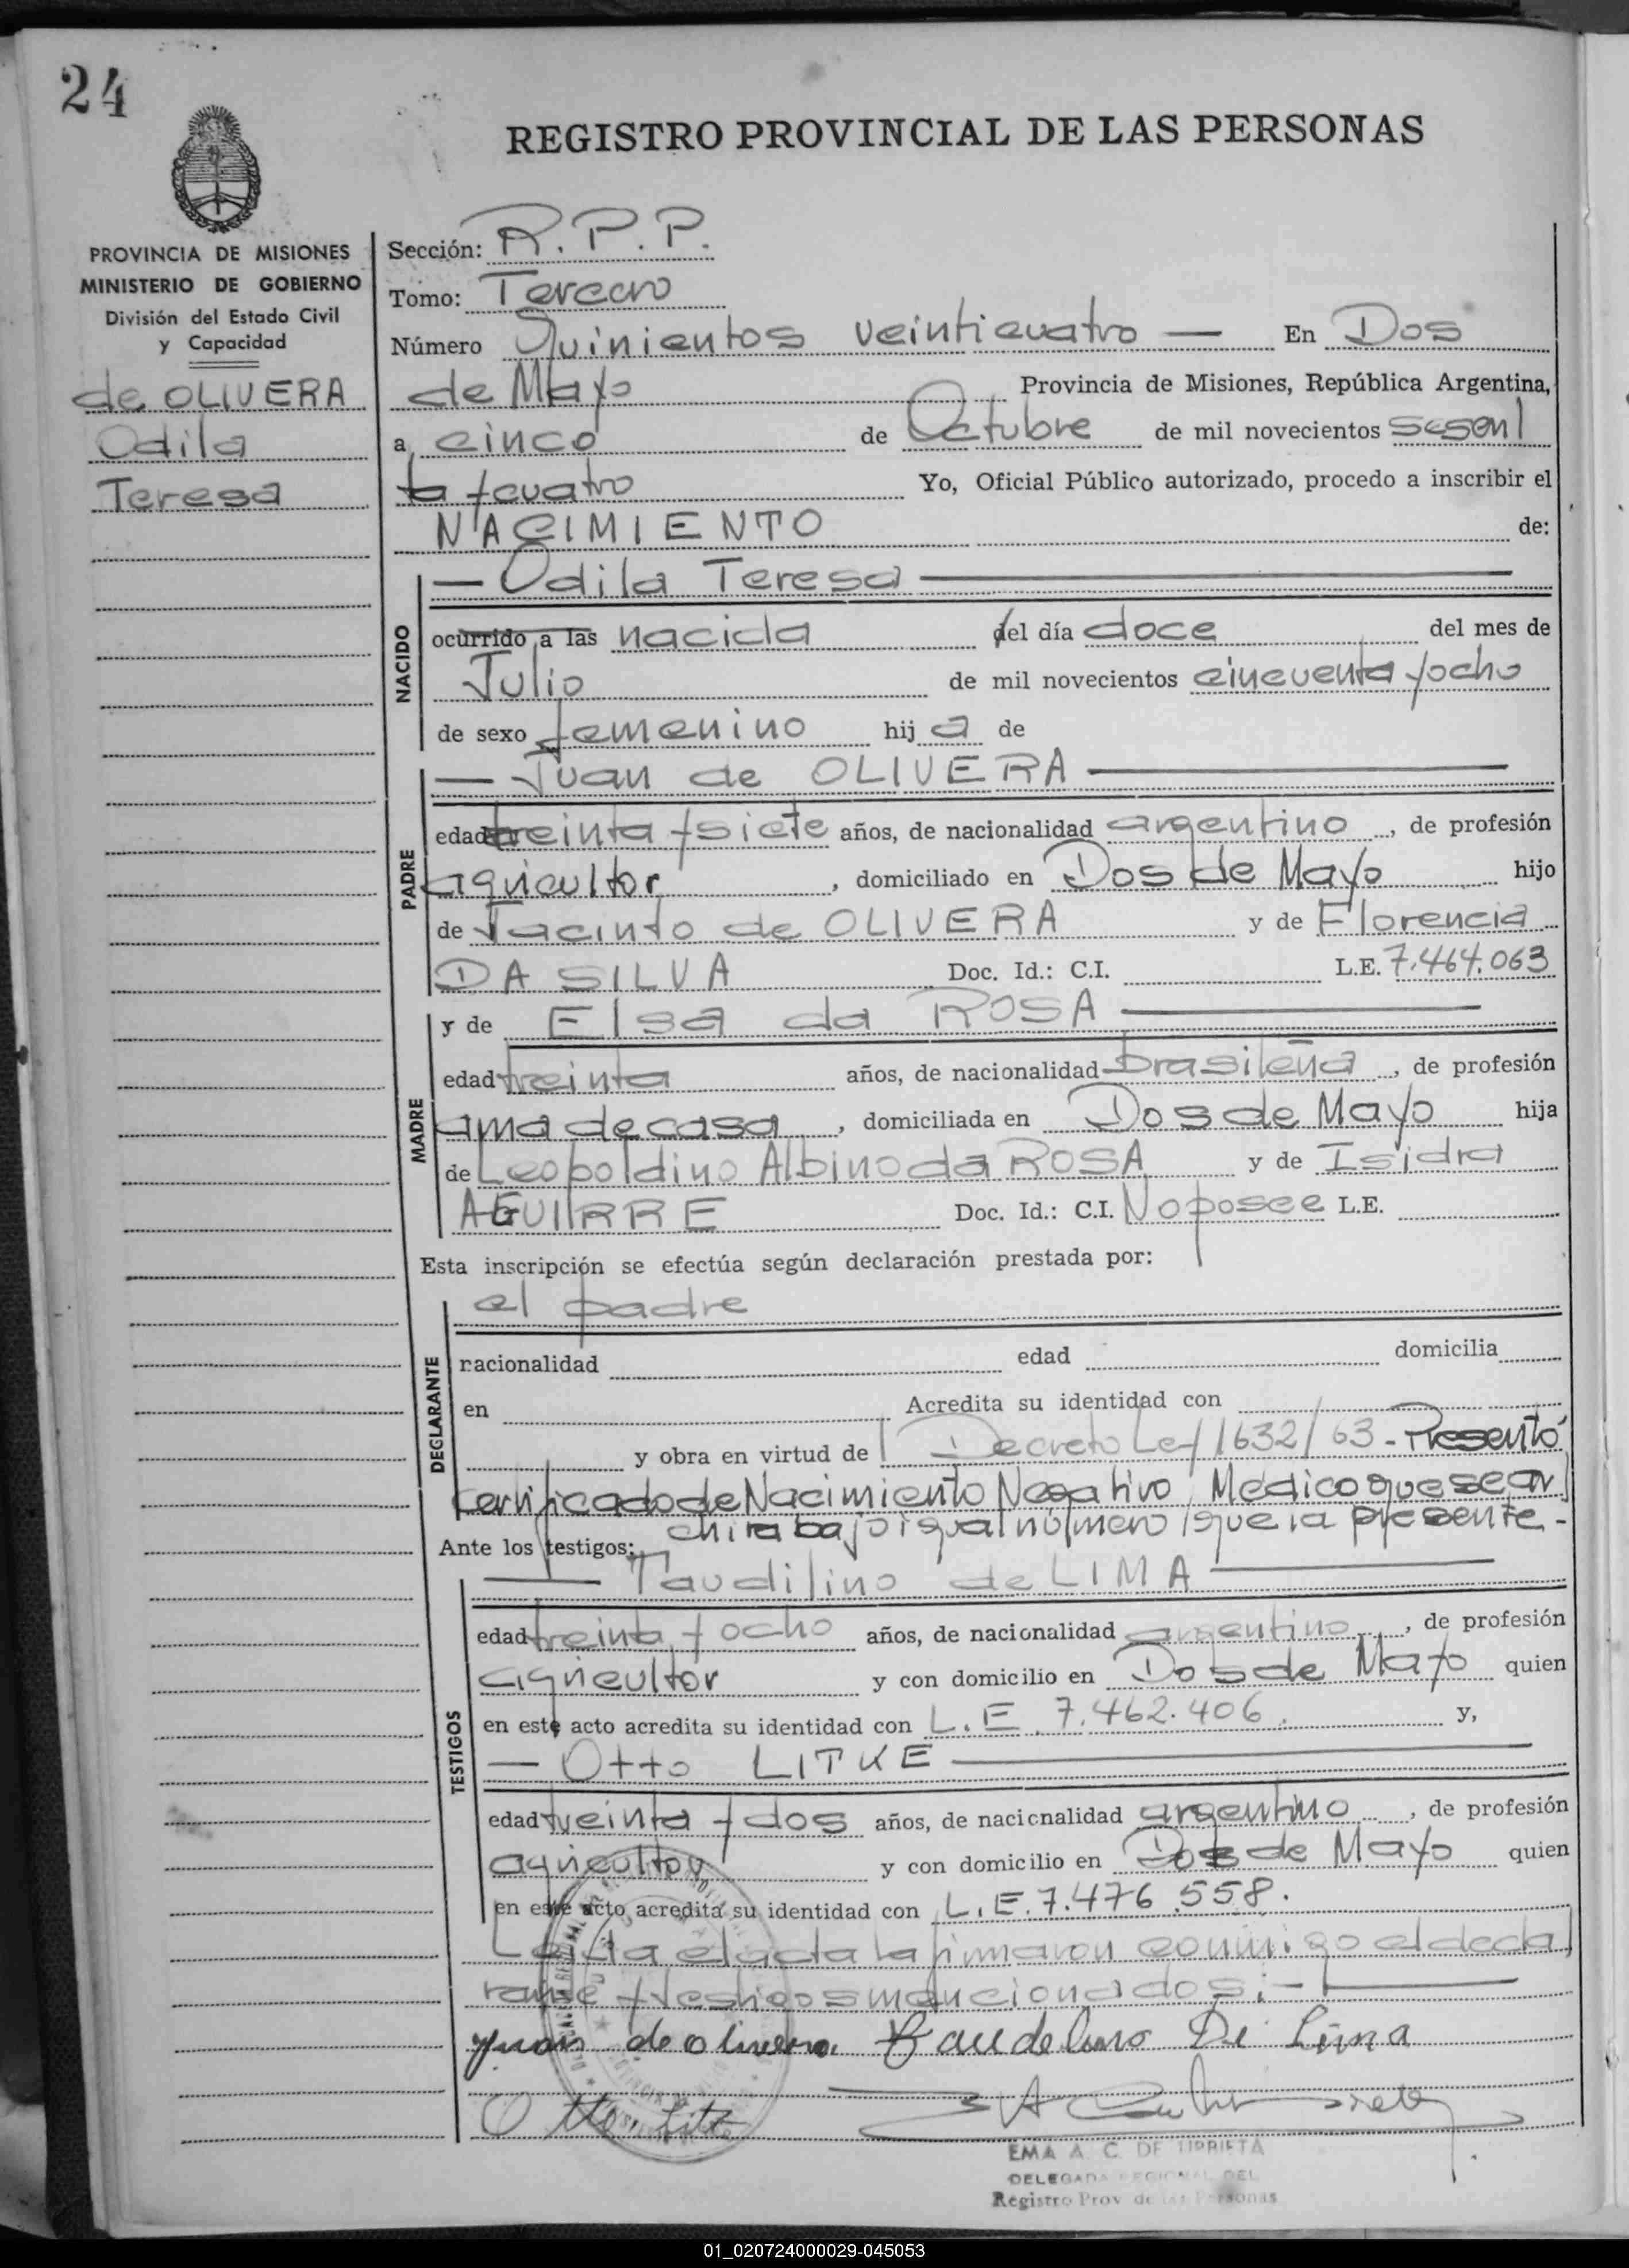 24
REGISTRO PROVINCIAL DE LAS PERSONAS
PROVINCIA DE MISIONES
MINISTERIO DE GOBIERNO
División del Estado Civil
y Capacidad
de OLIVERA
Odila
Teresa
Sección: R.P.P.
Tomo: Tercero
Número Quinientos veinticuatro — En Dos
de Mayo Provincia de Misiones, República Argentina,
a cinco de Octubre de mil novecientos sesen
ta y cuatro Yo, Oficial Público autorizado, procedo a inscribir el
NACIMIENTO de:
NACIDO
— Odila Teresa —
ocurrido a las nacida del día doce del mes de
Julio de mil novecientos cincuenta y ocho
de sexo femenino hij a de
PADRE
— Juan de OLIVERA —
edad treinta y siete años, de nacionalidad argentino, de profesión
agricultor, domiciliado en Dos de Mayo hijo
de Jacinto de OLIVERA y de Florencia
DA SILVA Doc. Id.: C.I. L.E. 7.464.063
MADRE
y de Elsa da ROSA —
edad treinta años, de nacionalidad brasileña, de profesión
ama de casa, domiciliada en Dos de Mayo hija
de Leopoldino Albino da ROSA y de Isidra
AGUIRRE Doc. Id.: C.I. No posee L.E.
Esta inscripción se efectúa según declaración prestada por:
DECLARANTE
el padre
nacionalidad edad domicilia
en Acredita su identidad con
y obra en virtud de Decreto Ley 1632/63 - Presentó
certificado de Nacimiento Negativo, Medico que se ar
chiva bajo igual número que la presente -
Ante los testigos:
TESTIGOS
— Taudilino de LIMA —
edad treinta y ocho años, de nacionalidad argentino, de profesión
agricultor y con domicilio en Dos de Mayo quien
en este acto acredita su identidad con L.E. 7.462.406. y,
— Otto LITKE —
edad treinta y dos años, de nacionalidad argentino, de profesión
agricultor y con domicilio en Dos de Mayo quien
en este acto acredita su identidad con L.E. 7.476.558.
Leída el acta la firmaron conmigo el decla
rante y testigos mencionados: -
Juan de olivera De Lima
Otto
EMA A. C. DE URRIETA
DELEGADA REGIONAL DEL
Registro Prov de las Personas
01_020724000029-045053